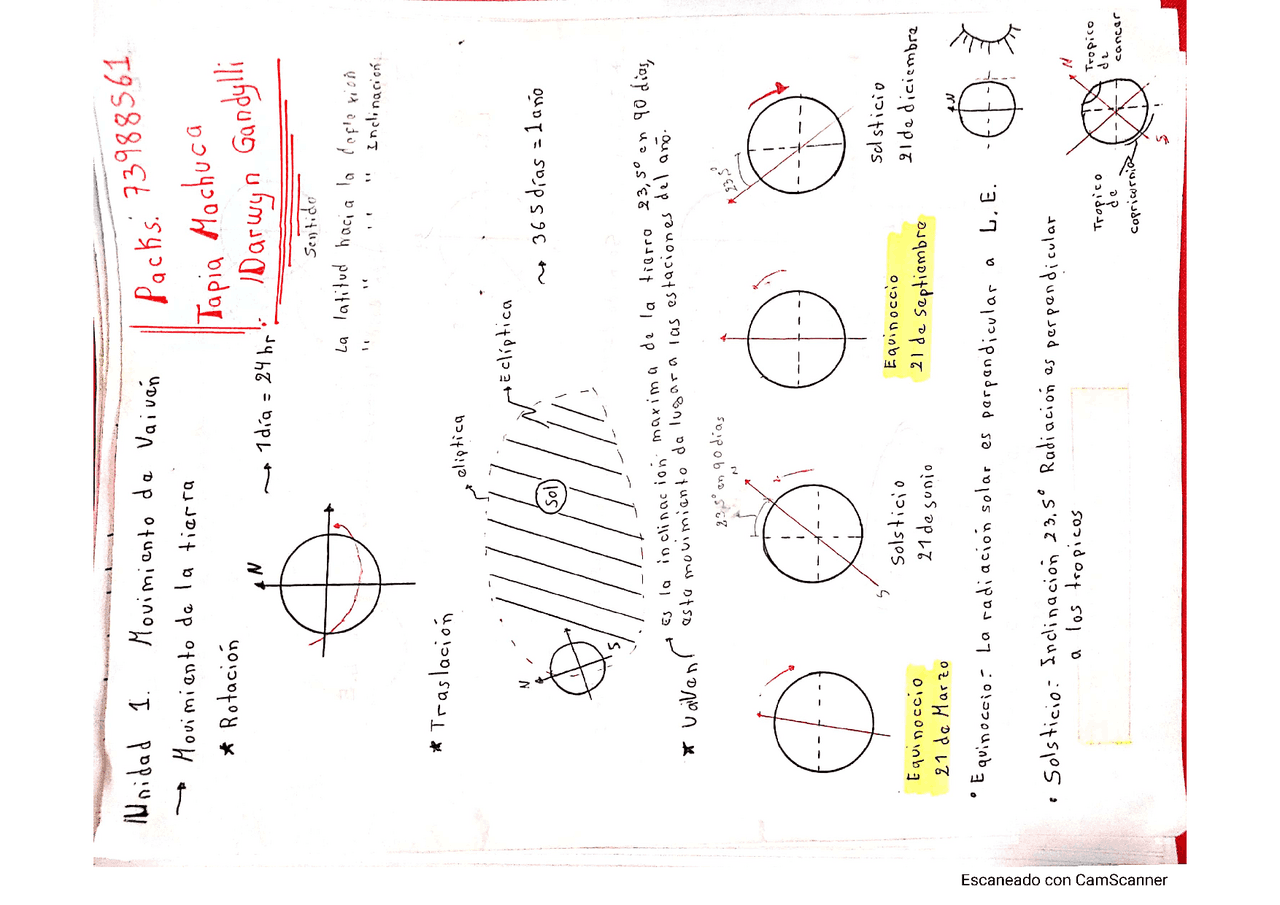 Unidad 1. Movimiento de Vaivén
Packs: 73988561
Tapia Machuca
Darwyn Gandylli
→ Movimiento de la tierra
★ Rotación
→ 1día = 24hr.
Sentido
La latitud hacia la
" " " " Inclinación
N
★ Traslación
elíptica
Eclíptica
Sol
N
S
→ 365 días = 1año
★ VaiVen → es la inclinacion maxima de la tierra 23,5° en 90 dias,
este movimiento da lugar a las estaciones del año.
Equinoccio
21 de Marzo
23,5° en 90 días
N
S
Solsticio
21 de Junio
Equinoccio
21 de septiembre
23,5°
Solsticio
21 de diciembre
• Equinoccio.- La radiación solar es perpendicular a L.E.
N
• Solsticio.- Inclinación 23,5° Radiación es perpendicular
a los tropicos
Tropico
de
cancer
N
S
Tropico
de
capricornio
Escaneado con CamScanner